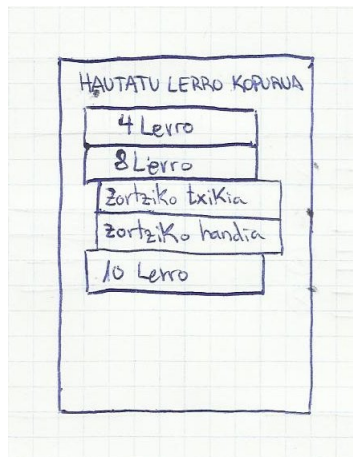 HAUTATU LERRO KOPURUA
4 Lerro
8 Lerro
Zortziko txikia
Zortziko handia
10 Lerro